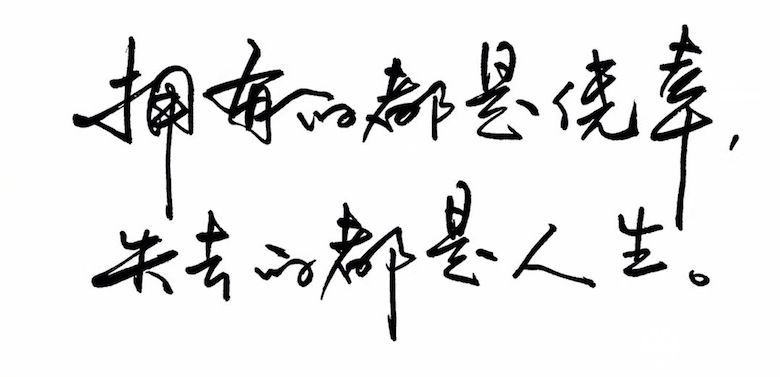 拥有的都是侥幸，
失去的都是人生。